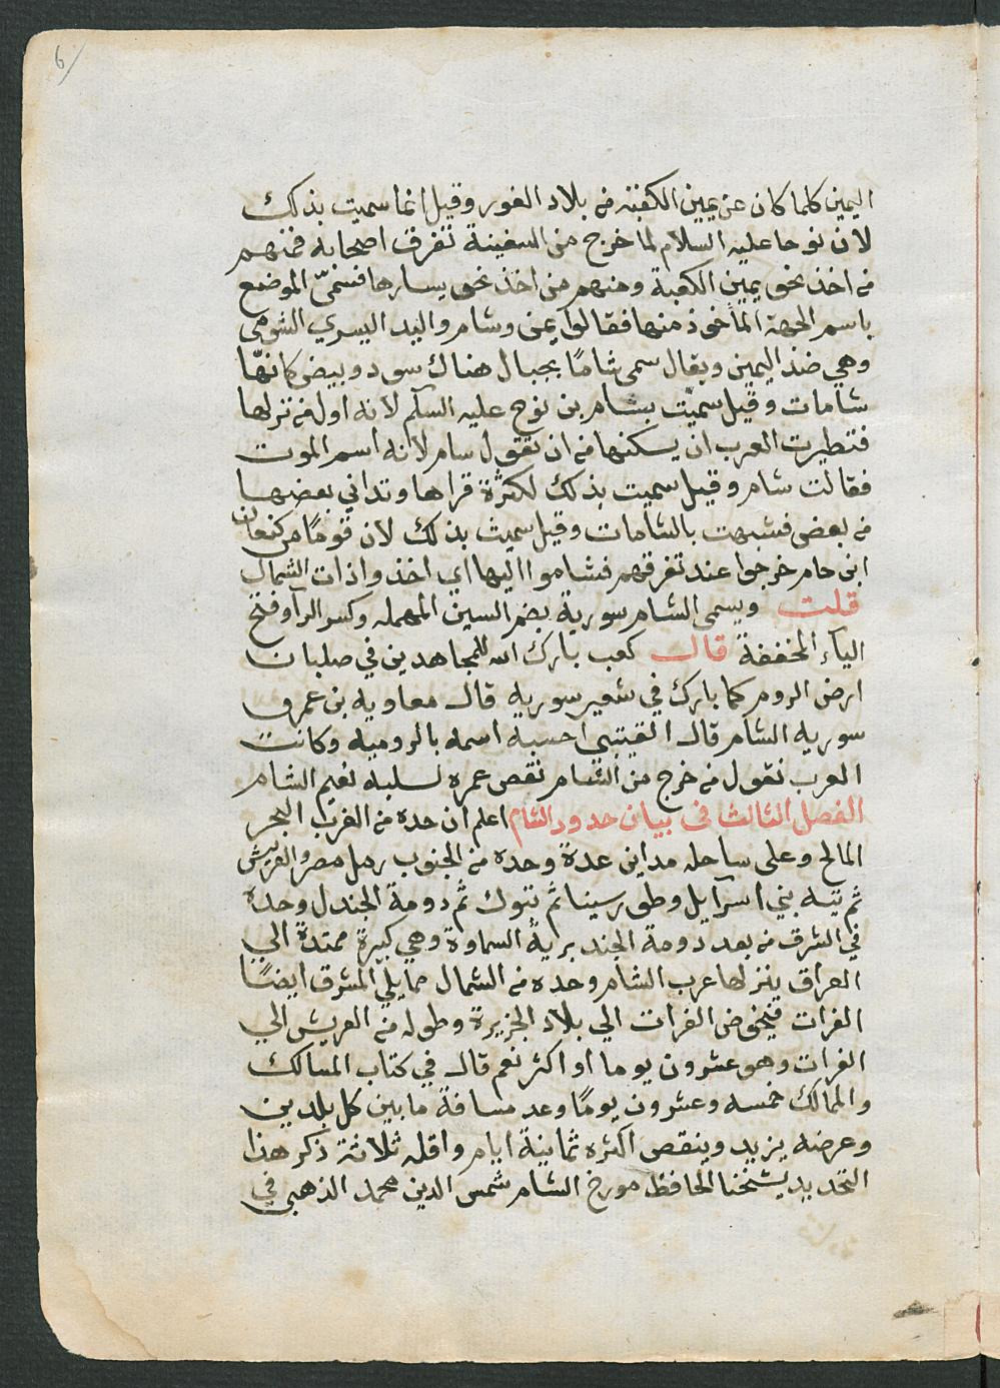 6/
اليمن كلما كان عن يمين الكعبة من بلاد الغور وقيل انما سميت بذلك
لان نوحا عليه السلام لما خرج من السفينة تفرق اصحابه فمنهم
من اخذ نحو يمين الكعبة ومنهم من اخذ نحو يسارها فسمي الموضع
باسم الجهة المأخوذ منها فقالوا يمن وشام واليد اليسري الشومي
وهي ضد اليمين ويقال سمي شامًا بجبال هناك سود وبيض كانهّا
شامات وقيل سميت بشام بن نوح عليه السلم لانه اول من نزلها
فتطيرت العرب ان يسكنها من ان تقول سام لانه اسم الموت
فقالت شام وقيل سميت بذلك لكثرة قراها وتداني بعضها
من بعض فشبهت بالشامات وقيل سميت بذلك لان قومًا من كنعان
ابن حام خرجوا عند تفرقهم فشاموا اليها اي اخذوا ذات الشمال
قلت ويسمي الشام سورية بضم السين المهمله وكسر الرآ وفتح
اليآء المخففة قال كعب بارك الله للمجاهدين في صلبان
ارض الروم كما بارك في شعير سوريه قال معاويه بن عمرو
سوريه الشام قال القيتبي احسبه اسمه بالروميه وكانت
العرب تقول من خرج من الشام نقص عمره لسلبه نعيم الشام
الفصل الثالث في بيان حدود الشام اعلم ان حده من الغرب البحر
المالح وعلى ساحله مداين عدة وحده من الجنوب رمل مصر والعريش
ثم تيه بني اسرآيل وطور سينا ثم تبوك ثم دومة الجندل وحده
في الشرق من بعد دومة الجند برية السماوة وهي كبيرة ممتدة الي
العراق ينزلها عرب الشام وحده من الشمال مما يلي المشرق ايضًا
الفرات فيخوض الفرات الي بلاد الجزيرة وطوله من العريش الي
الفرات وهو عشرون يوما او اكثر نعم قال في كتاب المسالك
والممالك خمسه وعشرون يومًا وعد مسافة ما بين كل بلدين
وعرضه يزيد وينقص اكثره ثمانية ايام واقله ثلاثة ذكر هذا
التحديد شيخنا الحافظ مورخ الشام شمس الدين محمد الذهبي في